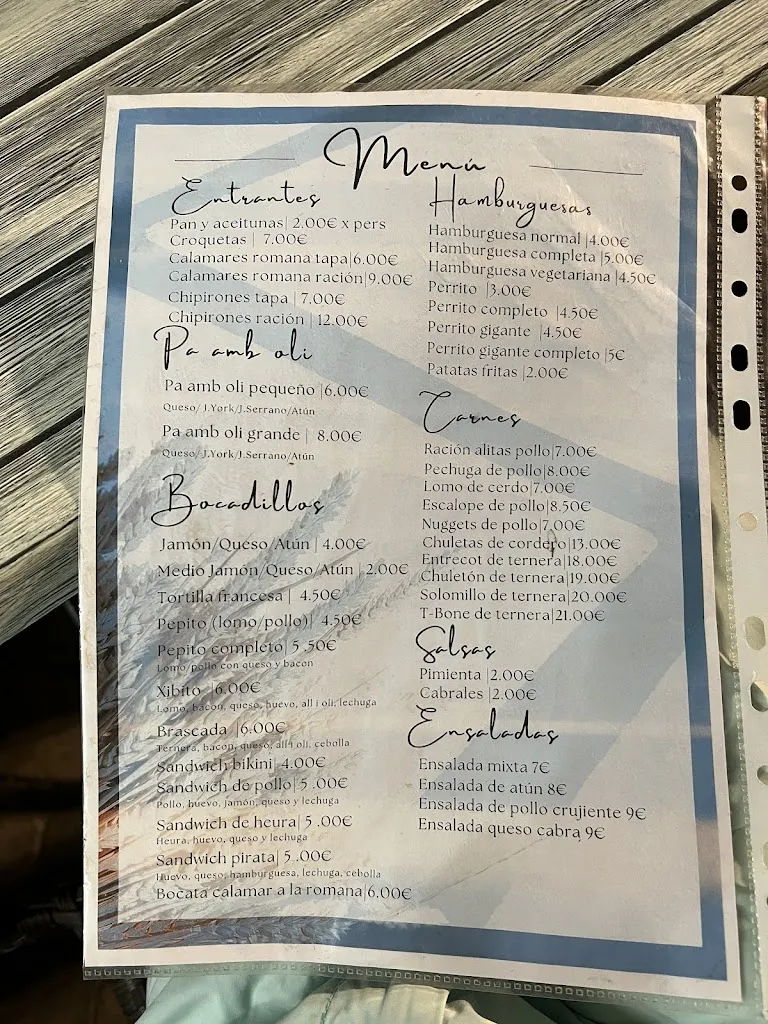 Menú
Entrantes
Pan y aceitunas| 2.00€ x pers
Croquetas | 7.00€
Calamares romana tapa|6.00€
Calamares romana ración|9.00€
Chipirones tapa | 7.00€
Chipirones ración | 12.00€
Pa amb oli
Pa amb oli pequeño |6.00€
Queso/J.York/J.Serrano/Atún
Pa amb oli grande | 8.00€
Queso/J.York/J.Serrano/Atún
Bocadillos
Jamón/Queso/Atún | 4.00€
Medio Jamón/Queso/Atún | 2.00€
Tortilla francesa | 4.50€
Pepito (lomo/pollo)| 4.50€
Pepito completo| 5 .50€
Lomo/pollo con queso y bacon
Xibito |6.00€
Lomo, bacon, queso, huevo, all i oli, lechuga
Brascada |6.00€
Ternera, bacon, queso, all i oli, cebolla
Sandwich bikini| 4.00€
Sandwich de pollo| 5 .00€
Pollo, huevo, jamón, queso y lechuga
Sandwich de heura| 5 .00€
Heura, huevo, queso y lechuga
Sandwich pirata| 5 .00€
Huevo, queso, hamburguesa, lechuga, cebolla
Bocata calamar a la romana|6.00€
Hamburguesas
Hamburguesa normal |4.00€
Hamburguesa completa |5.00€
Hamburguesa vegetariana |4.50€
Perrito |3.00€
Perrito completo |4.50€
Perrito gigante |4.50€
Perrito gigante completo |5€
Patatas fritas |2.00€
Carnes
Ración alitas pollo|7.00€
Pechuga de pollo|8.00€
Lomo de cerdo|7.00€
Escalope de pollo|8.50€
Nuggets de pollo|7.00€
Chuletas de cordero|13.00€
Entrecot de ternera|18.00€
Chuletón de ternera|19.00€
Solomillo de ternera|20.00€
T-Bone de ternera|21.00€
Salsas
Pimienta |2.00€
Cabrales |2.00€
Ensaladas
Ensalada mixta 7€
Ensalada de atún 8€
Ensalada de pollo crujiente 9€
Ensalada queso cabra 9€